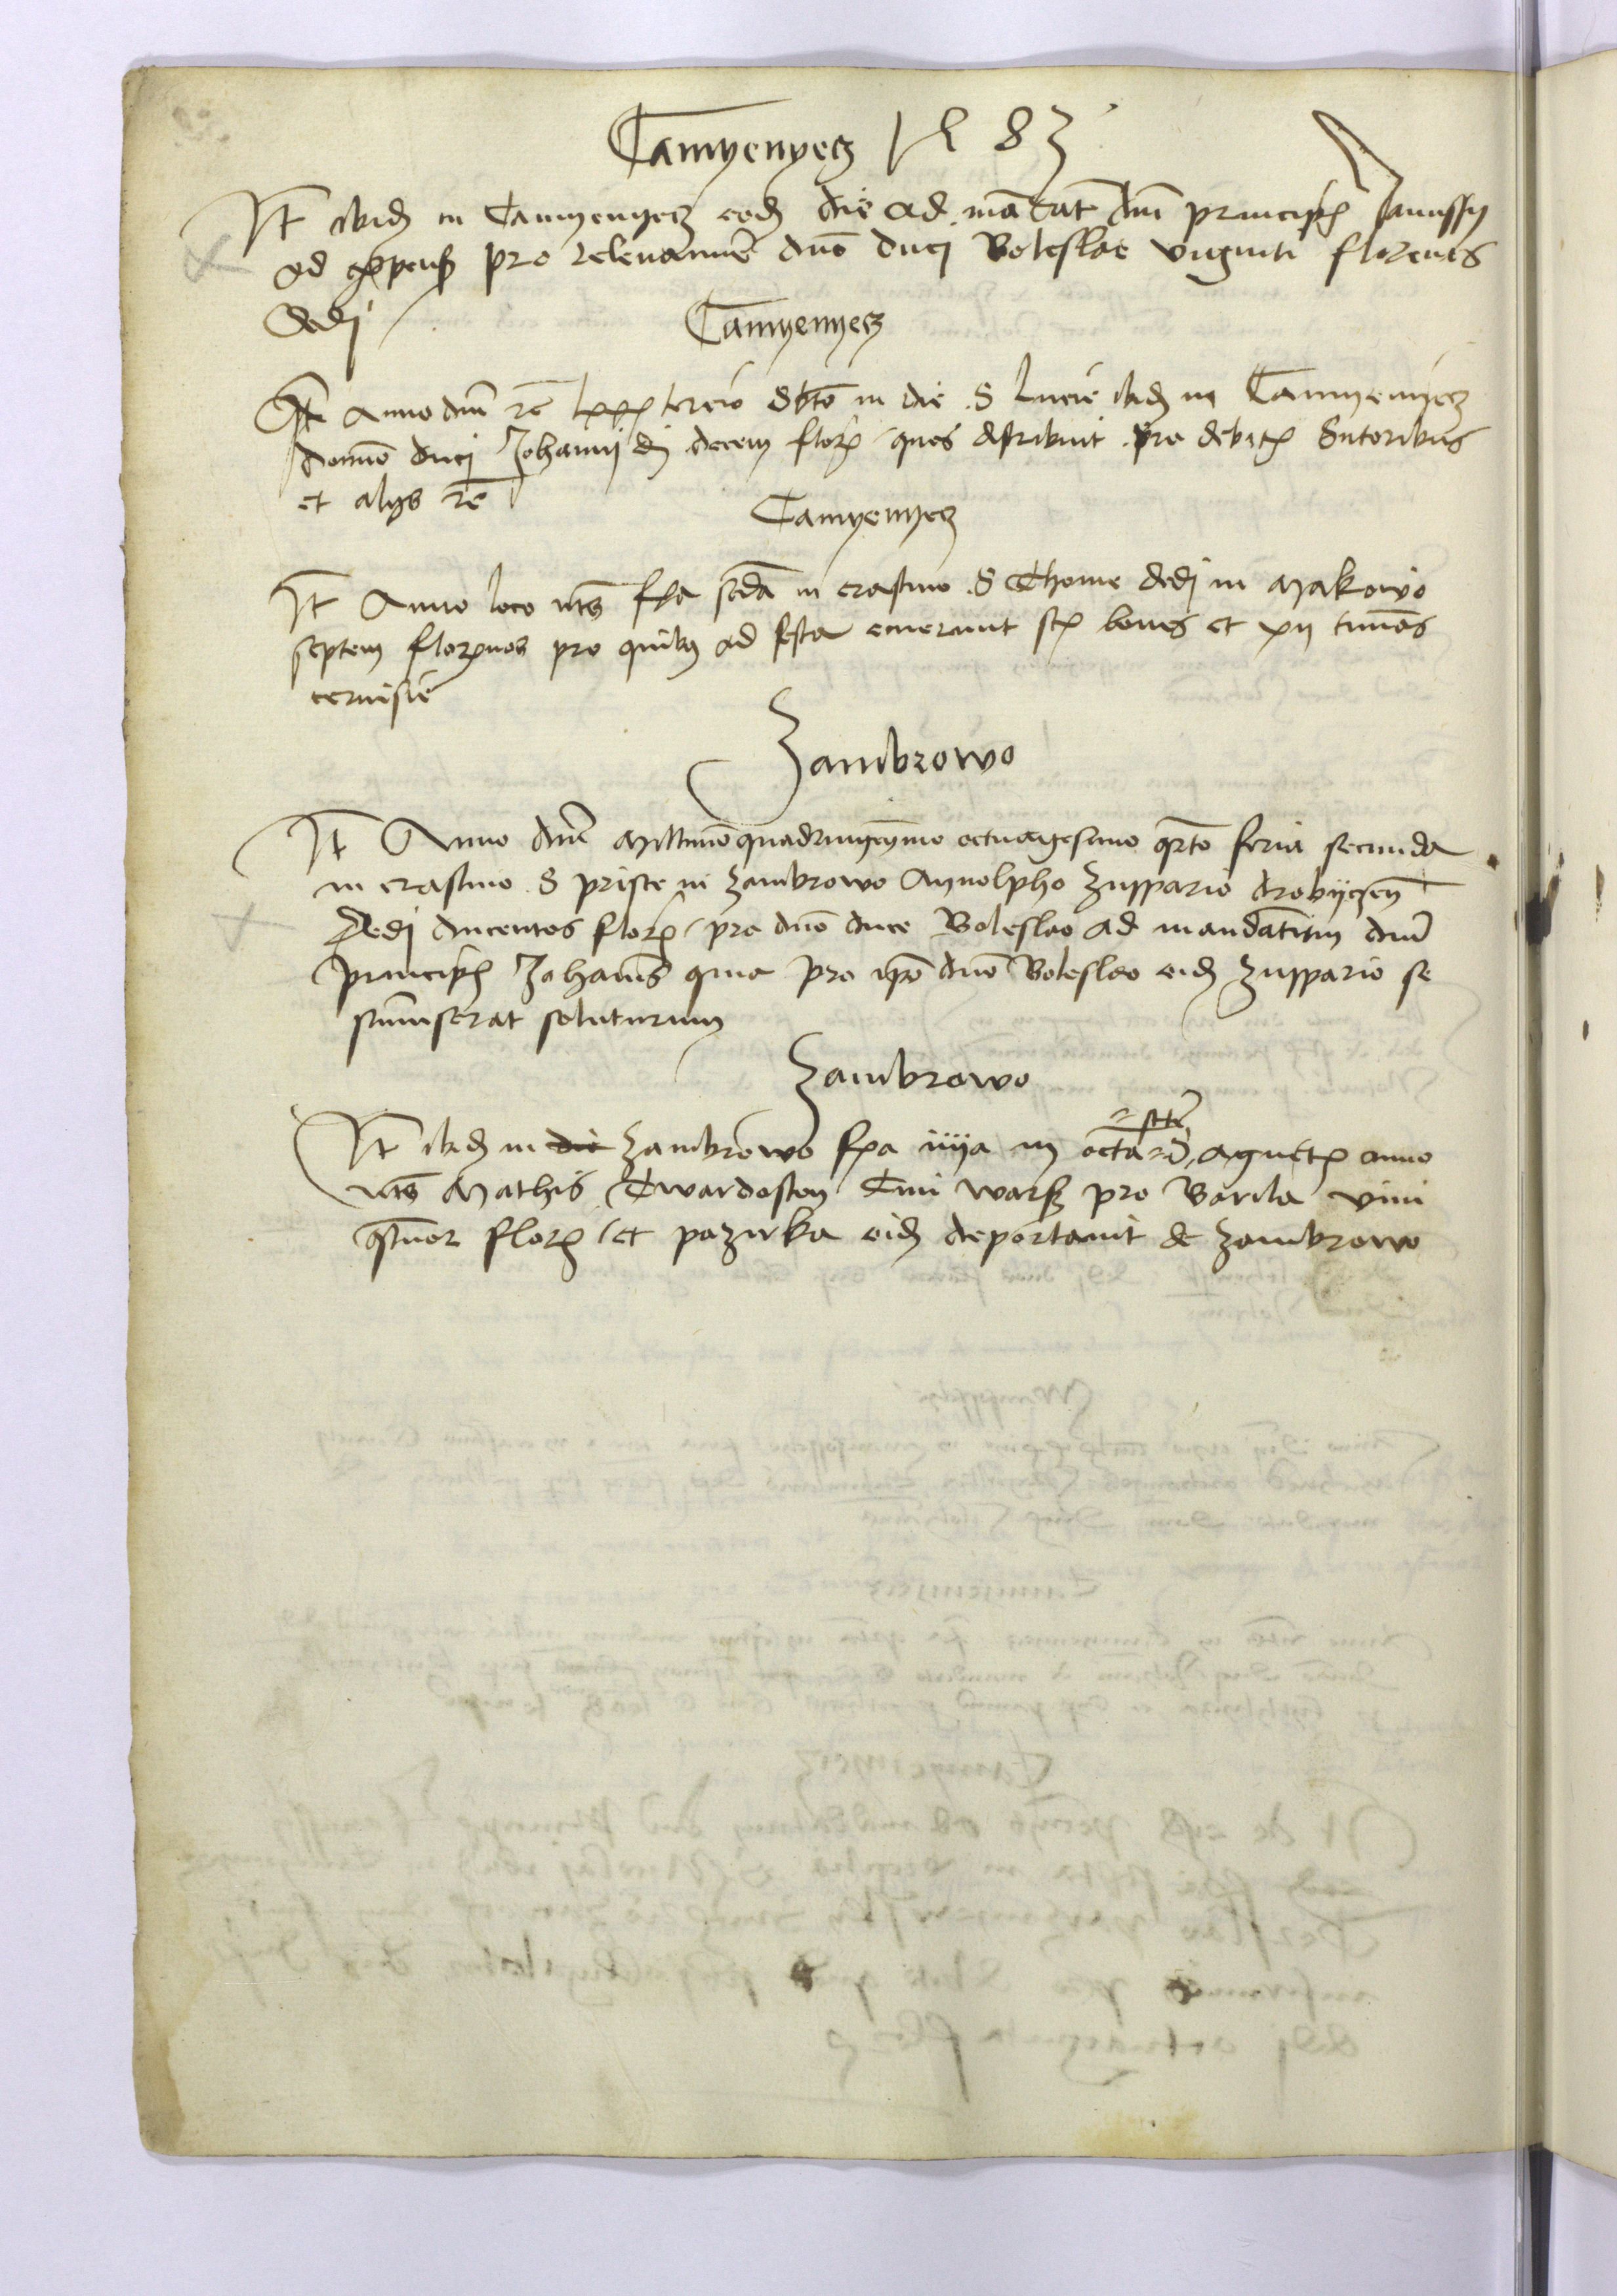 Camyenyecz 1483
It ibid in Camyenyecz eod die ad mādat dni principis Janussy
ad expens pro relevamine dno duci Boleslao viginti florenos
dedi
Camyenyecz
It Anno dni rc lxxx tercio Sbto in die S Lucie ibid in Camyenyecz
domino duci Johanni di decem flor quos distribuit pro debitis Sutoribus
et alys rc
Camyenyecz
It Anno loco uts fra scda in crastino S Thome dedi in Makowo
septem florenos pro quibus ad festa emerunt sex boves et xii tunnas
cervisie
Zambrowo
It Anno dni Millimo quadringmo octuagesimo qrto feria secunda
in crastino S prisce in Zambrowo Aynolpho Zuppario drobyczen
Dedi ducentos flor pro dno duce Boleslao ad mandatum dni
principis Johannis quia pro ipo dno Boleslao eid Zuppario se
summiserat soluturum
Zambrowo
It ibid in die Zambrowo fra iiija in octa S Agnetis anno
uts Mathis Twardoston Civi Wars pro Barila vini
qtuor flor et pazurka eid deportavit de Zambrowo